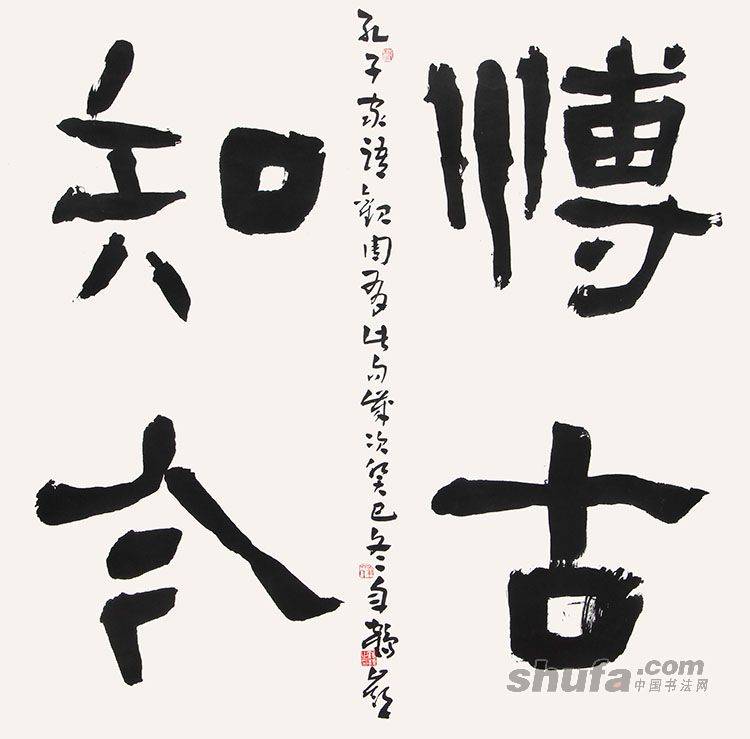 愽古
知今
孔子家语觀周有此句歲次癸巳冬
shufa.com
中国书法网